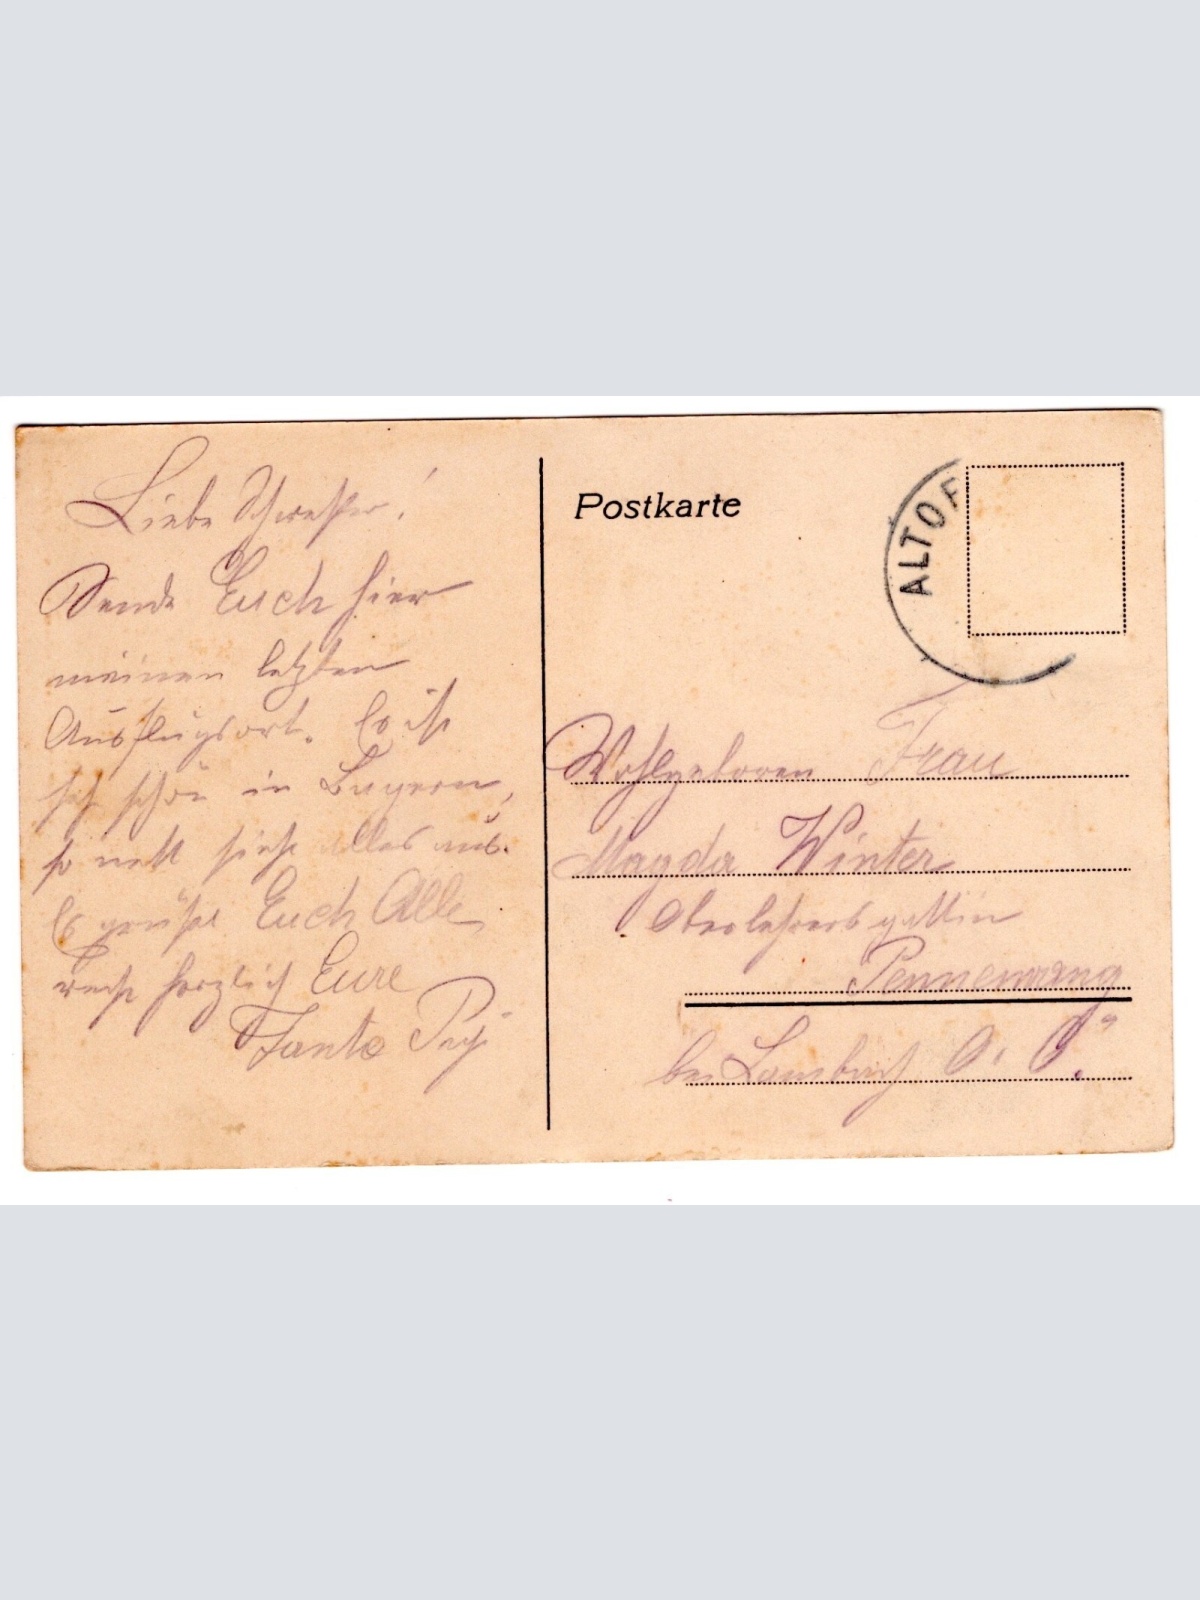 Liebe Schwester!
Sende Euch hier
meinen letzten
Ausflugsort. Es ist
sehr schön in Bayern,
so nett sieht alles aus.
Es grüßt Euch Alle
recht herzlich Eure
Tante
Postkarte
ALTOF
Wohlgeboren Frau
Magda Winter
Oberlehrersgattin
Pennewang
bei Lambach O. Ö.